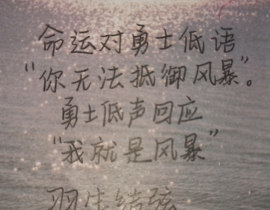 命运对勇士低语
“你无法抵御风暴”。
勇士低声回应
“我就是风暴”
羽生结弦